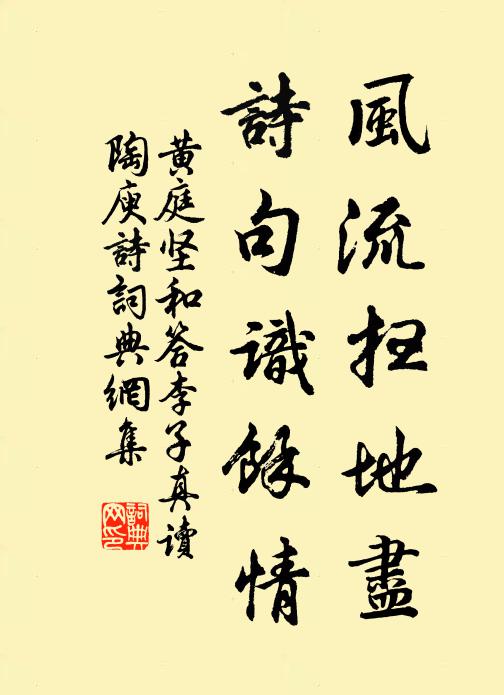 風流扫地盡
詩句識餘情
黄庭坚和答李子真讀
陶庾詩詞典網集
詞典網印